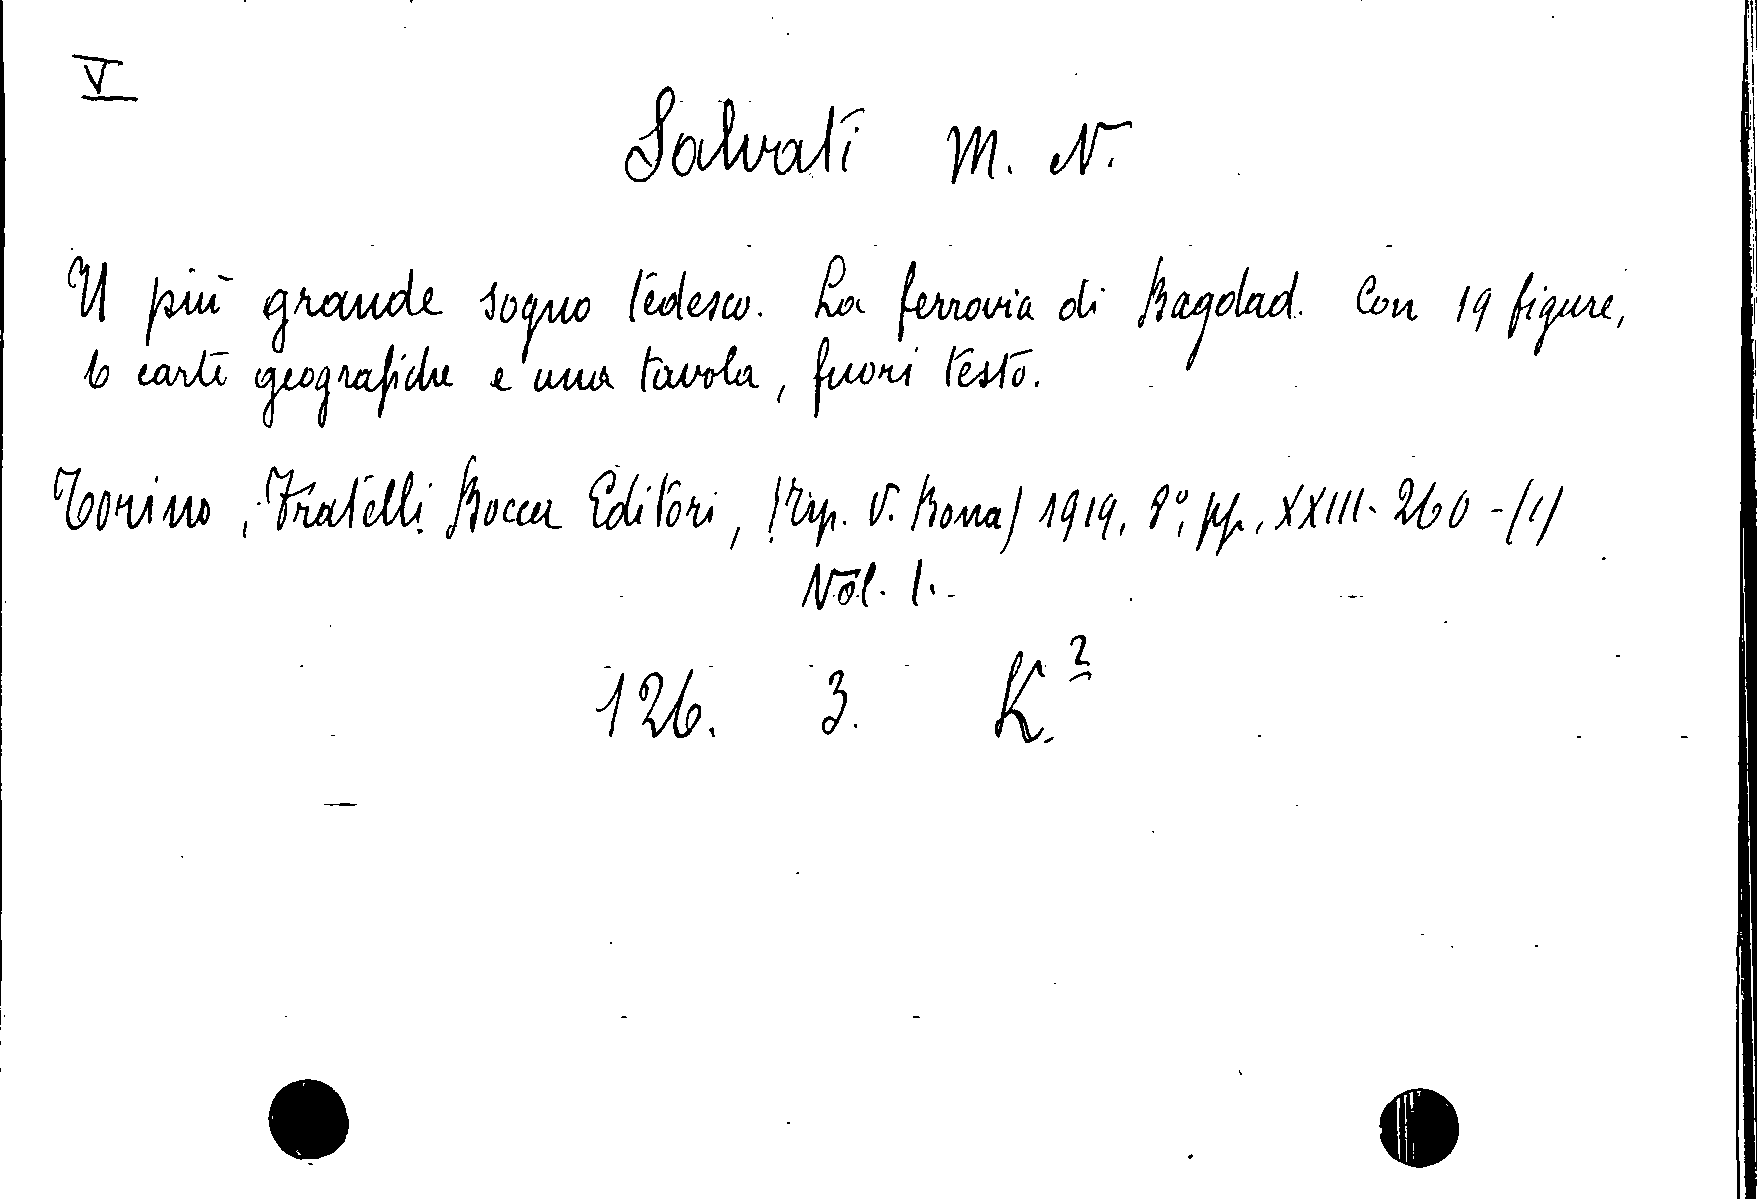 V
Salvati M. N.
Il più grande sogno tedesco. La ferrovia di Bagdad. Con 19 figure,
6 carte geografiche e una tavola, fuori testo.
Torino, Fratelli Bocca Editori, (Tip. V. Bona) 1919, 8°, pp. XXIII-260-(1)
Vol. 1.
126. 3. K.²